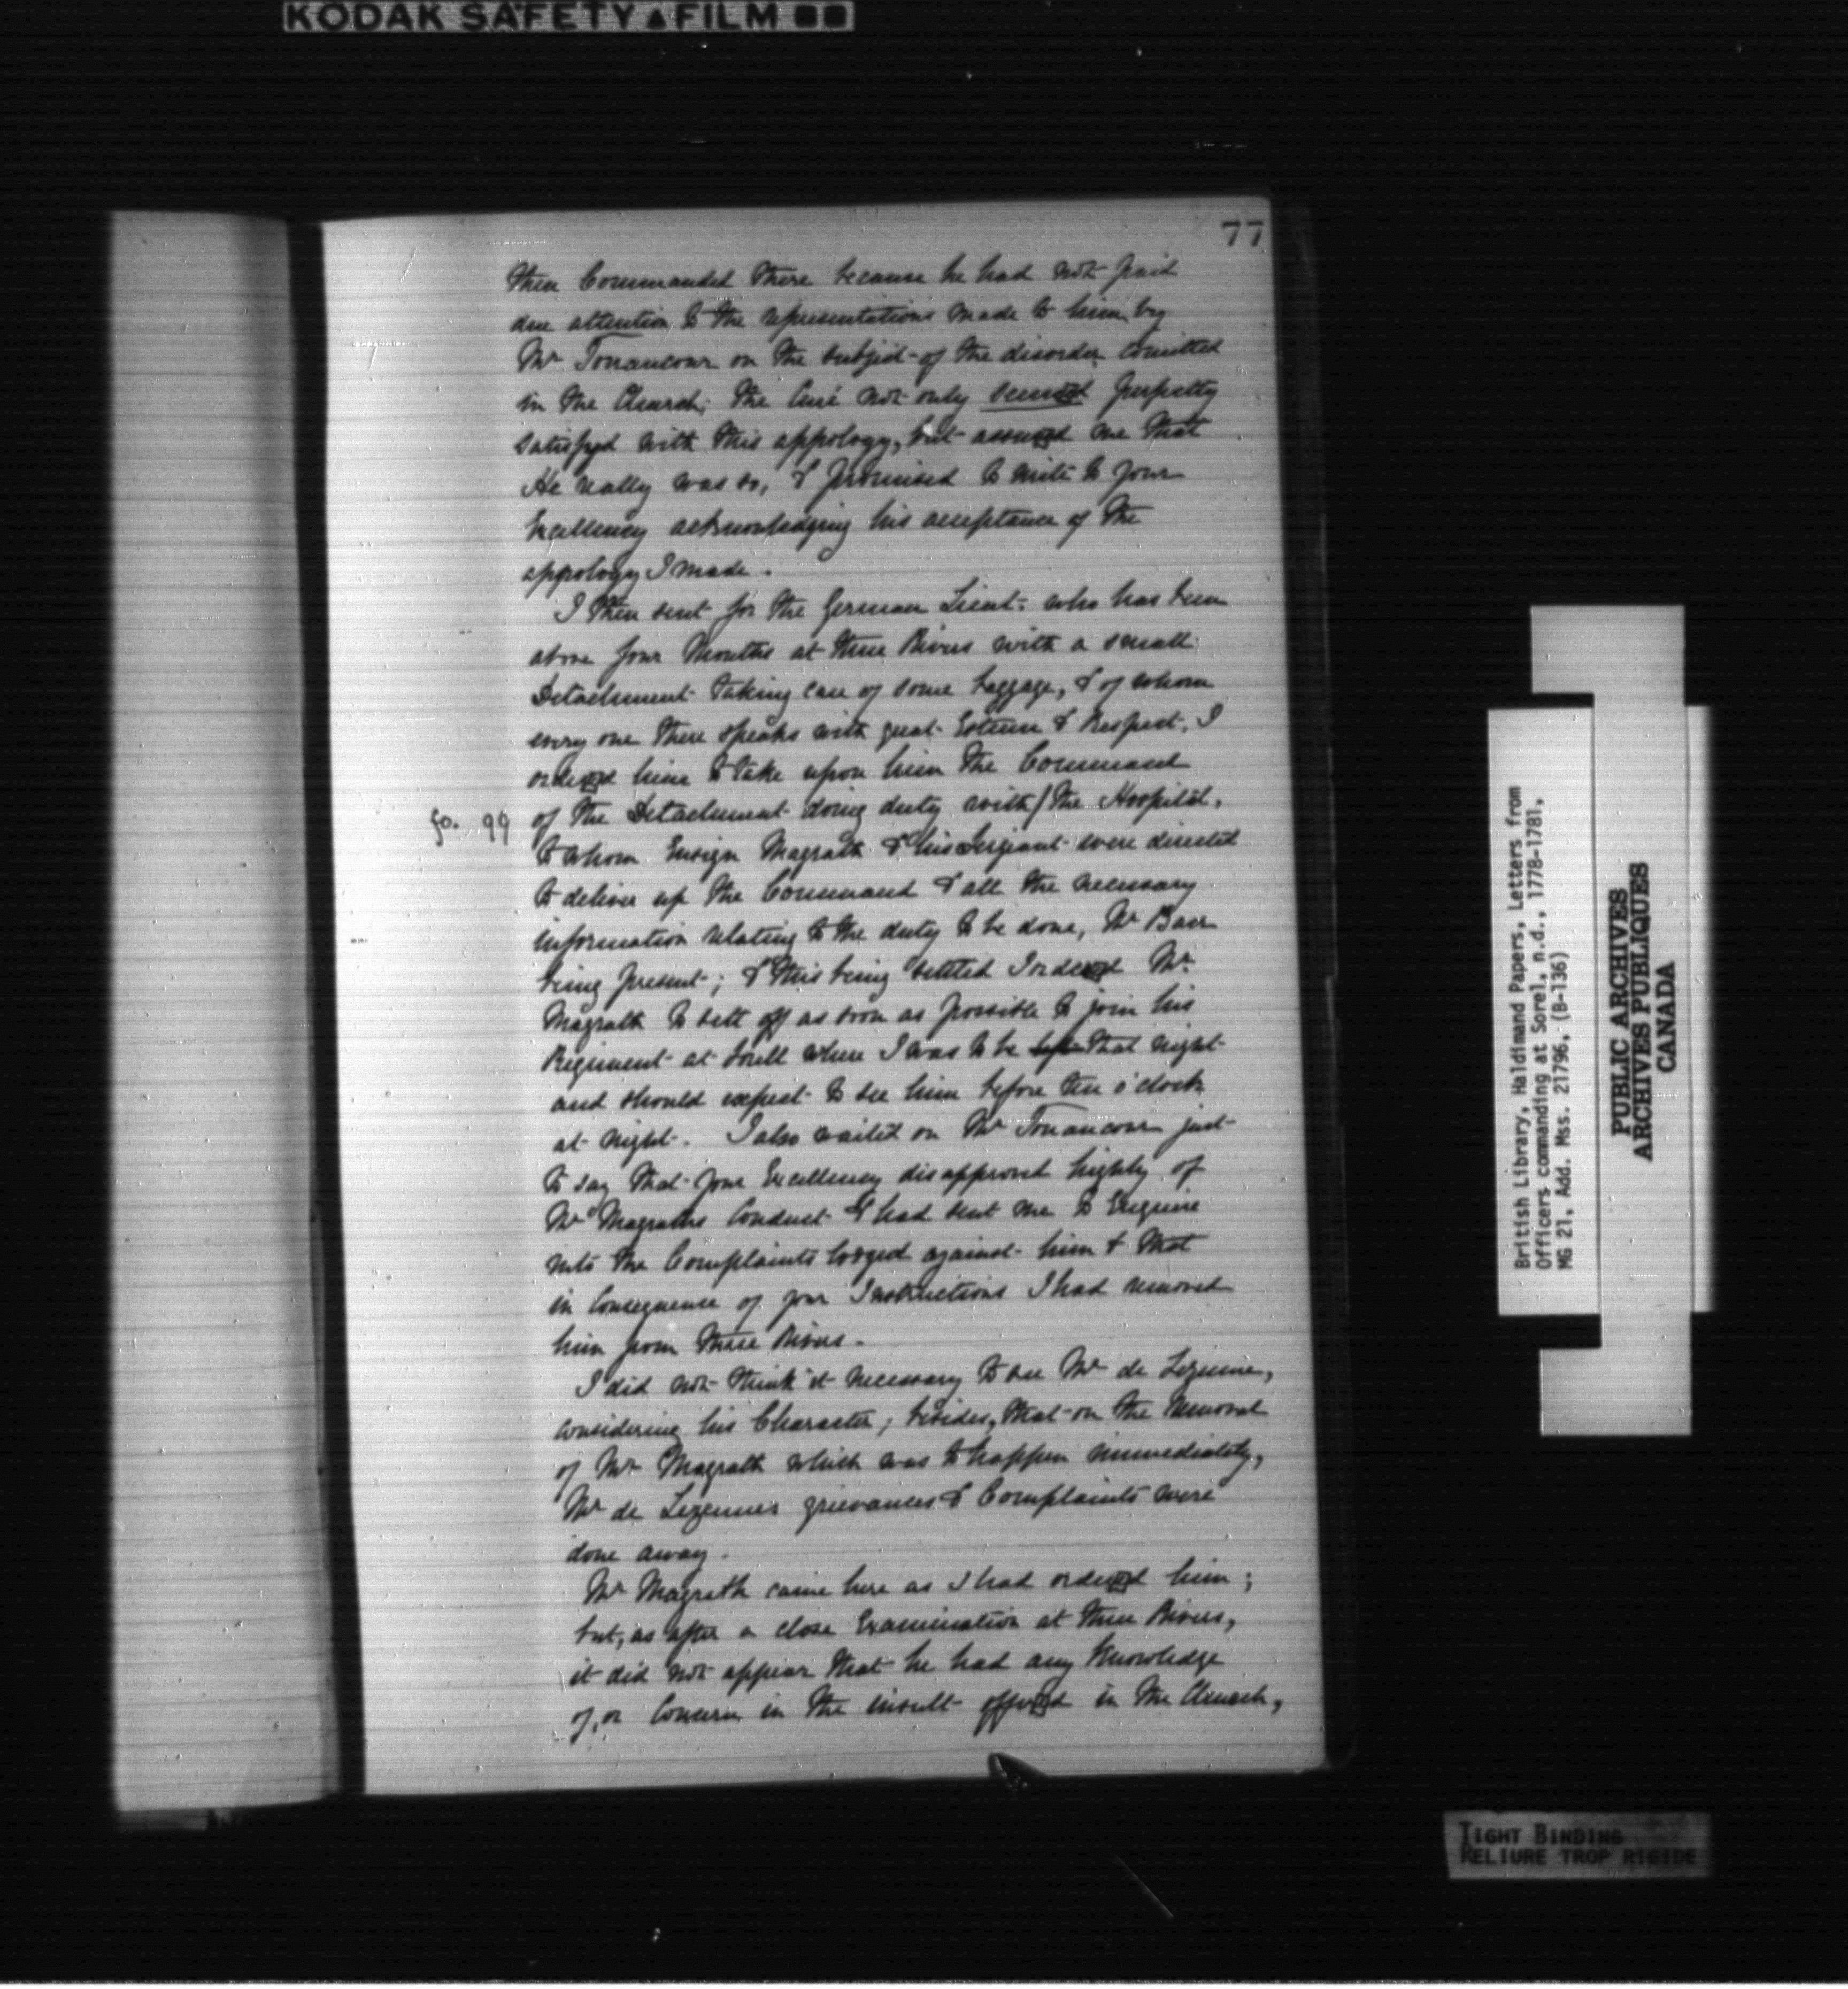 KODAK SAFETY FILM
77
then Commanded there because he had not paid
due attention to the representations made to him by
Mr Tonnancour on the subject of the disorder comitted
in the Church; the Curé not only seemed perfectly
satisfyed with this appology, but assured me that
He really was so, & promised to write to your
Excellency acknowledging his acceptance of the
appology I made.
I then sent for the German Lieut. who has been
above four Months at three Rivers with a small
Detachment taking care of some baggage, & of whom
every one there speaks with great Esteem & Respect, I
ordered him to take upon him the Command
fo. 99
of the Detachment doing duty with/the Hospital,
to whom Ensign Magrath & his Serjeant were directed
to deliver up the Command & all the necessary
information relating to the duty to be done, Mr Barr
being present; & this being settled I ordered Mr
Magrath to sett off as soon as possible to join his
Regiment at Sorell where I was to be that night
and should expect to see him before ten o'clock
at night. I also waited on Mr Tonancour just
to say that your Excellency disapproved highly of
Mr Magraths Conduct & had sent me to Enquire
into the Complaints lodged against him & that
in Consequence of your Instructions I had removed
him from three Rivers.
I did not think it necessary to see Mr de Lezenne,
considering his Character; besides, that on the removal
of Mr Magrath which was to happen immediately,
Mr de Lezennes grievances & Complaints were
done away.
Mr Magrath came here as I had ordered him;
but, as after a close Examination at three Rivers,
it did not appear that he had any Knowledge
of, or Concern in the insult offered in the Church,
British Library, Haldimand Papers, Letters from
Officers commanding at Sorel, n.d., 1778-1781,
MG 21, Add. Mss. 21796, (B-136)
PUBLIC ARCHIVES
ARCHIVES PUBLIQUES
CANADA
TIGHT BINDING
RELIURE TROP RIGIDE